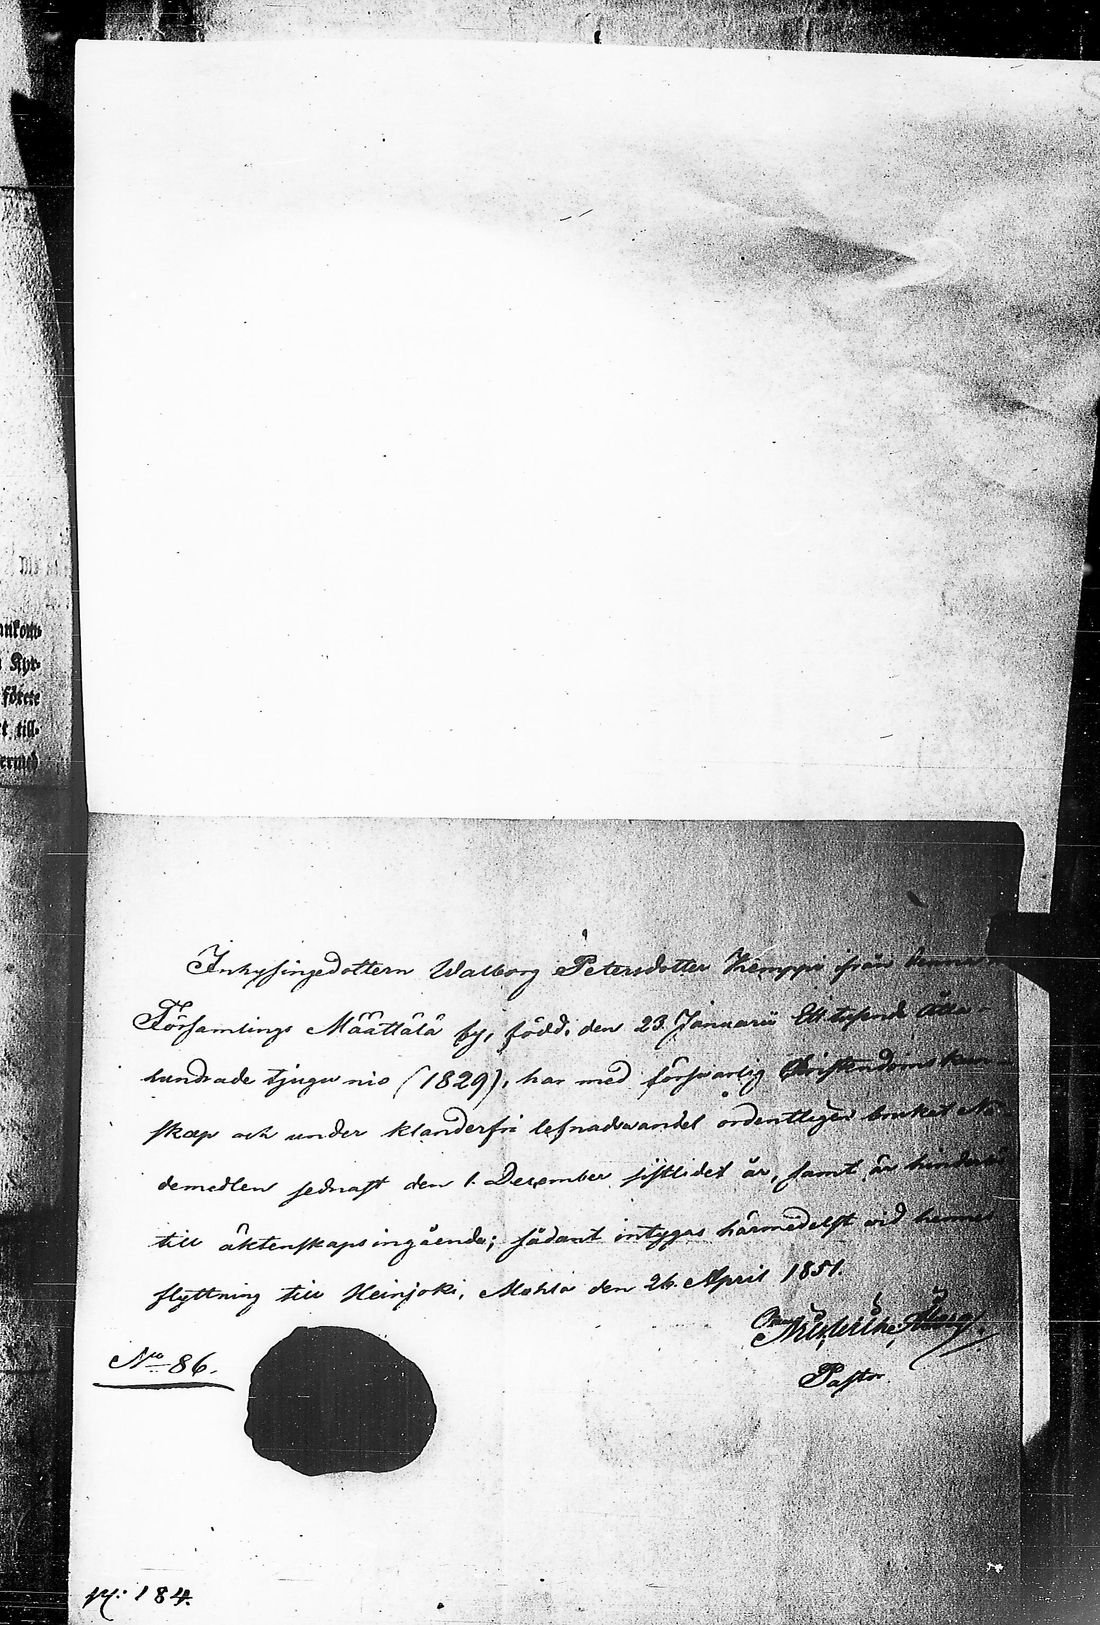 ankom-
Kyr-
förete
t till-
ermed
Inhysingedottern Walborg Petersdotter Kemppi från denna
Församlings Määttälä by, född. den 23 Januarii Ett tusende Åtta
hundrade tjugu nio (1829), har med försvarlig Christendoms kun-
skap och under klanderfri lefnadsvandel ordentligen brukat Nå-
demedlen sednast den 1. December sistlidet år, samt är hinderslös
till äktenskaps ingående; sådant intygas härmedelst vid hennes
flyttning till Heinjoki, Mohla den 26. April 1851.
Pastor.
No 86.
184.